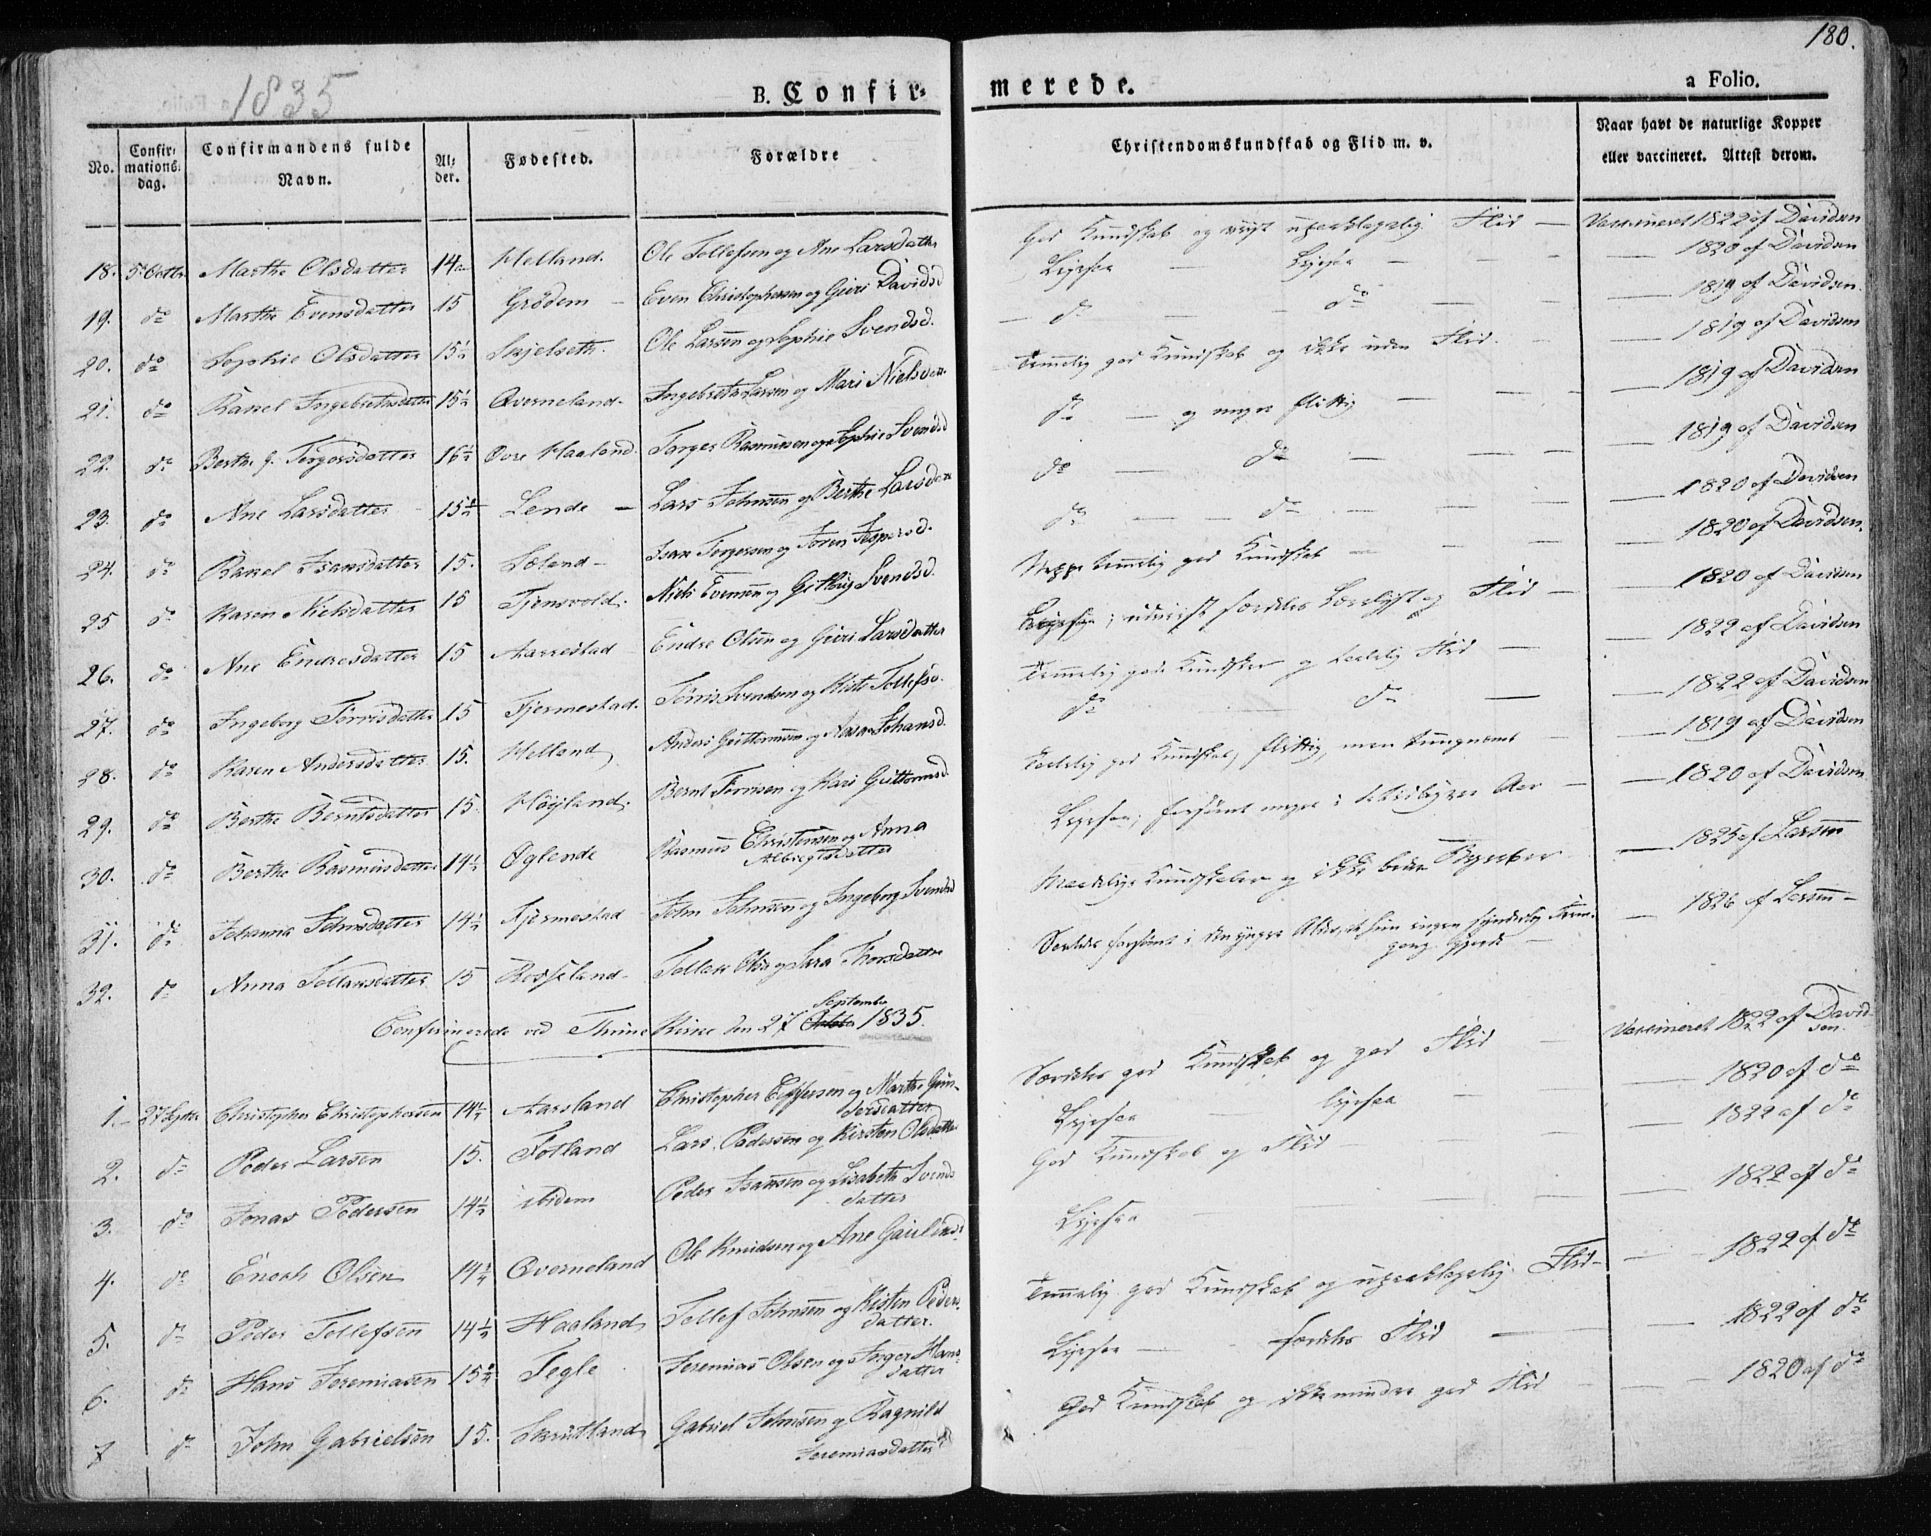 180.
1835
B. Confir- merede. a Folio.
No. Confir- mations- dag. Confirmandens fulde Navn. Al- der. Fødested. Forældre Christendomskundskab og Flid m. v. Naar havt de naturlige Kopper eller vaccineret. Attest derom.
18. 5 Octbr Marthe Olsdatter 14 Helland. Ole Tollefsen og Ane Larsdatter God Kundskab og Flid — Vaccineret 1822 af Davidsen
19. do Marthe Evensdatter 15 Grødem — Even Christophersen og Guri Davidsd Ligesaa — Ligesaa — — 1820 af Davidsen
20. do Sophie Olsdatter 15½ Skjelseth. Ole Larsen og Sophie Svendsd. do — do — — 1819 af Davidsen.
21. do Rakel Ingebretsdatter 15½ Qverneland. Ingebret Larsen og Mari Nielsdatt. Temmelig god Kundskab og ikke uden Flid. — 1819 af Davidsen
22. do Berthe G. Tergersdatter 16½ Øvre Haaland. Targer Rasmussen og Sophie Svendsd do — og meget flittig — 1819 af Davidsen
23. do Ane Larsdatter 15¾ Lende — Lars Johnsen og Berthe Larsdatt do — do — — 1819 af Davidsen
24. do Rakel Isaksdatter 15. Løland — Isak Tergersen og Søren Jespersd. do — do — — 1820 af Davidsen
25 do Karen Nielsdatter 15 Tjensvold. Niels Evensen og Gitlaug Svendsd. Neppe temmelig god Kundskab — 1820 af Davidsen.
26. do Ane Endresdatter 15 Aarrestad Endre Olsen og Guri Larsdatter Ligesaa; Lærelyst og Flid — 1820 af Davidsen
27. do Ingeborg Tørrisdatter 15 Fjermestad. Tørris Svendsen og Tollefsd. Temmelig gode Kundskaber og Flid — 1822 af Davidsen
28. do Karen Andersdatter 15. Helland Anders Guttormsen og Aasa Johansd. do — do — 1822 af Davidsen
29. do Berthe Berntsdatter 15. Høyland. Bernt Tørrisen og Kari Guttormsd. god Kundskab, flittig, men tungnemt — 1819 af Davidsen
30. do Berthe Rasmusdatter 14½ Øglende Rasmus Christensen og Anna
Albregtsdatter Ligesaa; forsømt meget i — 1820 af Davidsen
31. do Johanna Johnsdatter 14½ Fjermestad John Johnsen og Ingeborg Svendsd Maadelige Kundskaber og ikke — 1825 af Larsen
32. do Anna Tollaksdatter 15 Rosseland Tollak Olsen og Sara Thorsdatter forsømt i den yngre Alder, — 1826 af Larsen —
Confirmerede ved Thime Kirke den 27 September 1835.
1. 27 Septbr Christopher Christophersen 14½ Aarsland Christopher og Marthe Gun-
dersdatter god Kundskab og god Flid — Vaccineret 1822 af David-
sen.
2. do Peder Larsen 15. Fotland Lars Pedersen og Kirsten Olsdatter Ligesaa — ligesaa — 1820 af do
3. do Jonas Pedersen 14½ ibidem Peder Isaksen og Lisabeth Svends
datter God Kundskab og Flid — 1822 af do
4. do Enoch Olsen 14¾ Qverneland Ole Knudsen og Ane Ligesaa — — 1822 af do
5. do Peder Tollefsen 14½ Haaland Tollef Johnsen og Kisten Peders-
datter. Temmelig god Kundskab og upaaklagelig Flid — — 1822 af do
6. do Hans Jeremiasen 15¾ Tegle Jeremias Olsen og Inger Hans-
datter Ligesaa — Flid — 1822 af do
7 do John Gabrielsen 15. Skrutland Gabriel Johnsen og Ragnild
Jeremiasdatter God Kundskab og ikke mindre god Flid — 1820 af do